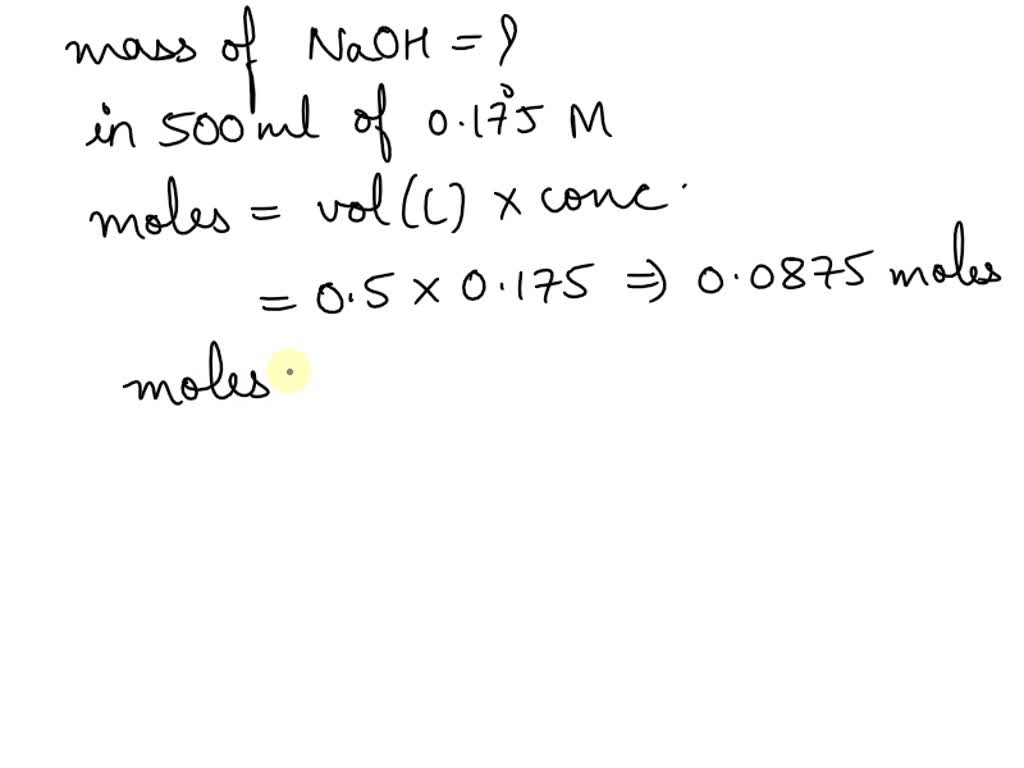 mass of NaOH = ?
in 500 ml of 0.175 M
moles = vol(L) × conc.
= 0.5 × 0.175 ⇒ 0.0875 moles
moles